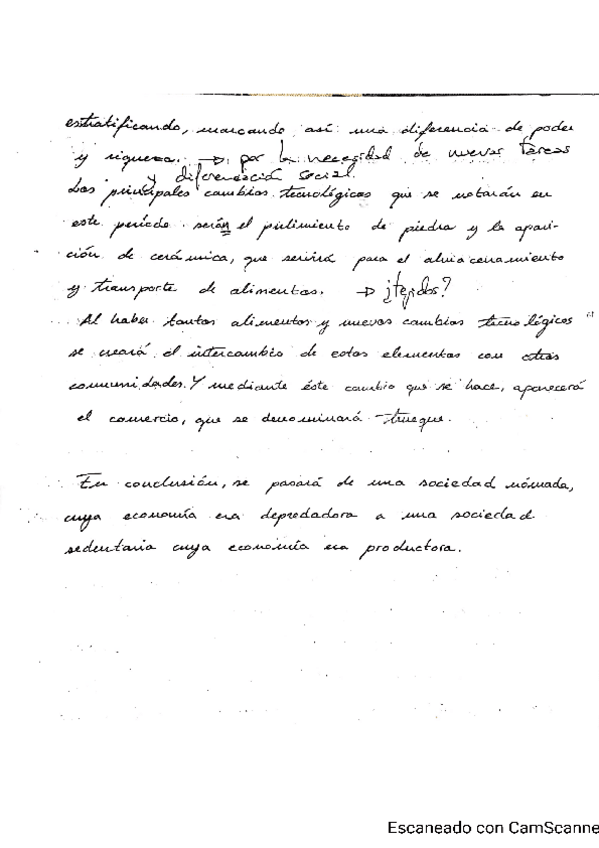 estratificando, marcando así una diferencia de poder
y riqueza. → por la necesidad de nuevas tareas
y diferenciación social.
Los principales cambios tecnológicos que se notarán en
este período serán el pulimiento de piedra y la apari-
ción de cerámica, que servirá para el almacenamiento
y transporte de alimentos. → ¿tejidos?
Al haber tantos alimentos y nuevos cambios tecnológicos
se creará el intercambio de estos elementos con otras
comunidades. Y mediante éste cambio que se hace, aparecerá
el comercio, que se denominará trueque.
En conclusión, se pasará de una sociedad nómada,
cuya economía era depredadora a una sociedad
sedentaria cuya economía era productora.
Escaneado con CamScanne